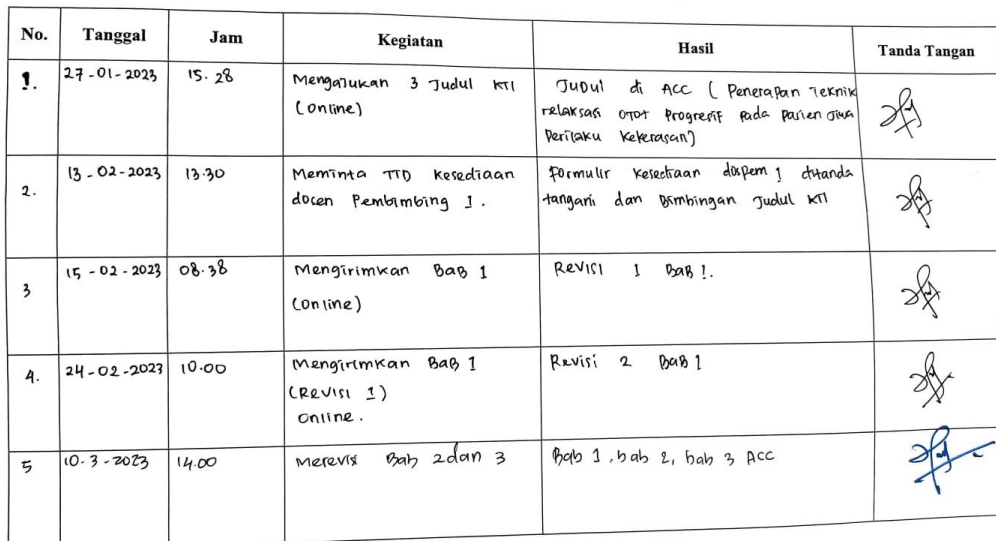 No. Tanggal Jam Kegiatan Hasil Tanda Tangan
1. 27-01-2023 15.28 Mengajukan 3 Judul KTI Judul di ACC ( Penerapan Teknik
(online) relaksasi otot Progresif pada pasien Jiwa
Perilaku Kekerasan)
2. 13-02-2023 13.30 Meminta TTD Kesediaan Formulir Kesediaan dospem 1 ditanda
docen Pembimbing 1. tangani dan Bimbingan Judul KTI
3 15-02-2023 08.38 Mengirimkan BAB 1 Revisi 1 BAB 1.
(online)
4. 24-02-2023 10.00 Mengirimkan BAB 1 Revisi 2 BAB 1
(Revisi 1)
online.
5 10-3-2023 14.00 Merevisi Bab 2 dan 3 Bab 1, bab 2, bab 3 ACC